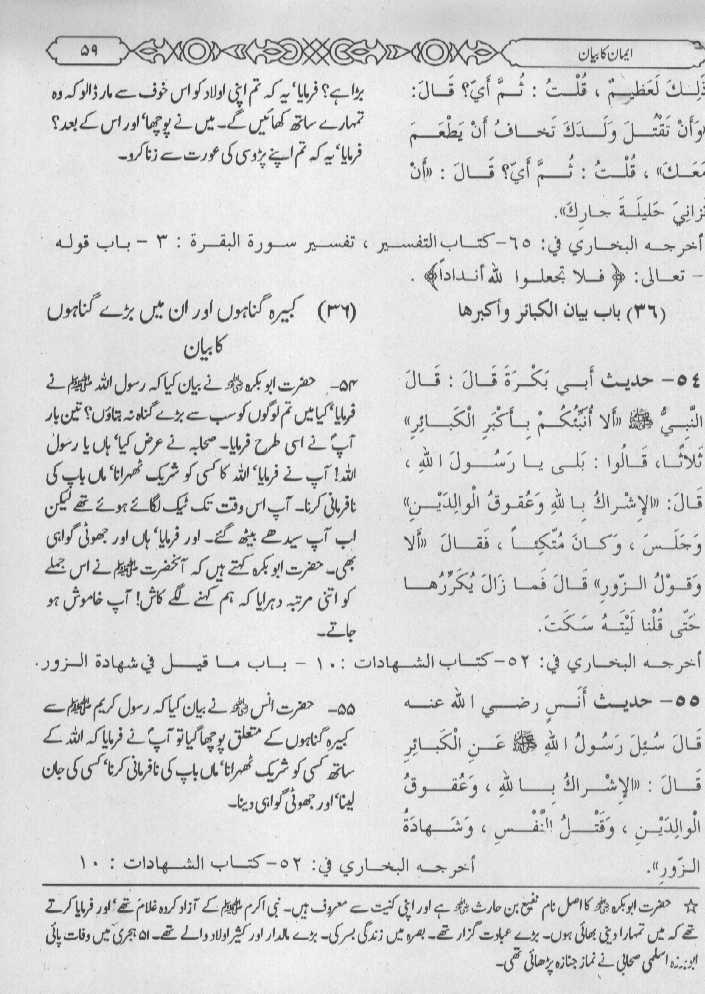 ایمان کا بیان
۵۹
ذَلِكَ لَعَظِيمٌ ، قُلْتُ : ثُمَّ أَيّ؟ قَالَ:
«وَأَنْ تَقْتُلَ وَلَدَكَ تَخافُ أَنْ يَطْعَمَ
مَعَكَ» ، قُلْتُ : ثُمَّ أَيّ؟ قَالَ : «أَنْ
تُزانِيَ حَلِيلَةَ جارِكَ».
بڑا ہے؟ فرمایا‘ یہ کہ تم اپنی اولاد کو اس خوف سے مار ڈالو کہ وہ
تمہارے ساتھ کھائیں گے۔ میں نے پوچھا‘ اور اس کے بعد؟
فرمایا‘ یہ کہ تم اپنے پڑوسی کی عورت سے زنا کرو۔
أخرجه البخاري في: ٦٥- كتاب التفسير ، تفسير سورة البقرة : ٣ - باب قوله
- تعالى: ﴿ فـلا تجعلوا لله أنداداً﴾ .
(٣٦) باب بيان الكبائر وأكبرها
(۳۶) کبیرہ گناہوں اور ان میں بڑے گناہوں
کا بیان
٥٤- حديث أَبـي بَكْرَةَ قَالَ : قَالَ
النَّبِيُّ ﷺ «أَلا أُنَبِّئُكُمْ بِأَكْبَرِ الْكَبائِرِ»
ثَلاثًا، قَالُوا : بَلى يا رَسُولَ اللهِ ،
قَالَ: «الإِشْراكُ بِاللهِ وَعُقوقُ الْوالِدَيْنِ»
وَجَلَسَ ، وَكانَ مُتَّكِئاً ، فَقالَ «أَلا
وَقَوْلُ الزّورِ» قَالَ فَما زَالَ يُكَرِّرُها
حَتّى قُلْنا لَيْتَهُ سَكَتَ.
۵۴- حضرت ابو بکرہ ؓ نے بیان کیا کہ رسول اللہ ﷺ نے
فرمایا‘ کیا میں تم لوگوں کو سب سے بڑے گناہ نہ بتاؤں؟ تین بار
آپؐ نے اسی طرح فرمایا۔ صحابہ نے عرض کیا‘ ہاں یا رسول
اللہ! آپ نے فرمایا‘ اللہ کا کسی کو شریک ٹھہرانا‘ ماں باپ کی
نافرمانی کرنا۔ آپ اس وقت تک ٹیک لگائے ہوئے تھے لیکن
اب آپ سیدھے بیٹھ گئے۔ اور فرمایا‘ ہاں اور جھوٹی گواہی
بھی۔ حضرت ابو بکرہ کہتے ہیں کہ آنحضرت ﷺ نے اس جملے
کو اتنی مرتبہ دہرایا کہ ہم کہنے لگے کاش! آپ خاموش ہو
جاتے۔
أخرجه البخاري في: ٥٢- كتاب الشهادات : ١٠ - باب ما قيل في شهادة الزور.
٥٥- حديث أَنَسٍ رضـي اللهُ عنـه
قَالَ سُئِلَ رَسُولُ اللهِ ﷺ عَنِ الْكَبائِرِ
قَالَ : «الإِشْراكُ بِاللهِ ، وَعُقوقُ
الْوالِدَيْنِ ، وَقَتْلُ النَّفْسِ ، وَشَهادَةُ
الزّورِ».
۵۵- حضرت انس ؓ نے بیان کیا کہ رسول کریم ﷺ سے
کبیرہ گناہوں کے متعلق پوچھا گیا تو آپؐ نے فرمایا کہ اللہ کے
ساتھ کسی کو شریک ٹھہرانا‘ ماں باپ کی نافرمانی کرنا‘ کسی کی جان
لینا‘ اور جھوٹی گواہی دینا۔
أخرجه البخاري في: ٥٢- كتاب الشهادات : ١٠
☆ حضرت ابو بکرہ ؓ کا اصل نام نفیع بن حارث ؓ ہے اور اپنی کنیت سے معروف ہیں۔ نبی اکرم ﷺ کے آزاد کردہ غلام تھے‘ اور فرمایا کرتے
تھے کہ میں تمہارا دینی بھائی ہوں۔ بڑے عبادت گزار تھے۔ بصرہ میں زندگی بسر کی۔ بڑے مالدار اور کثیر اولاد والے تھے۔ ۵۱ ہجری میں وفات پائی
ابو برزہ اسلمی صحابی نے نماز جنازہ پڑھائی تھی۔